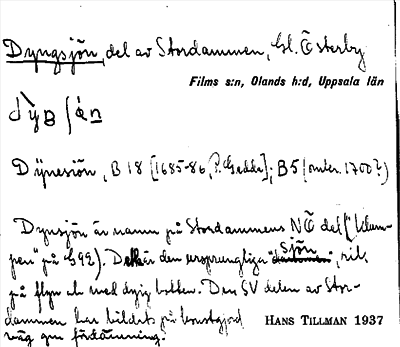 Dyngsjön, del av Stordammen, Gl. Österby
Films s:n, Olands h:d, Uppsala län
Dÿnesiön, B 18 [1685-86, P. Gedda]; B 5 (omkr. 1700?)
Dynsjön är namn på Stordammens NÖ del
på G92). är den ursprungliga sjön, rik
på flyn och med dyig botten. Den SV delen av Stor-
dammen har bildats på konstgjord
väg gm fördämning.
HANS TILLMAN 1937